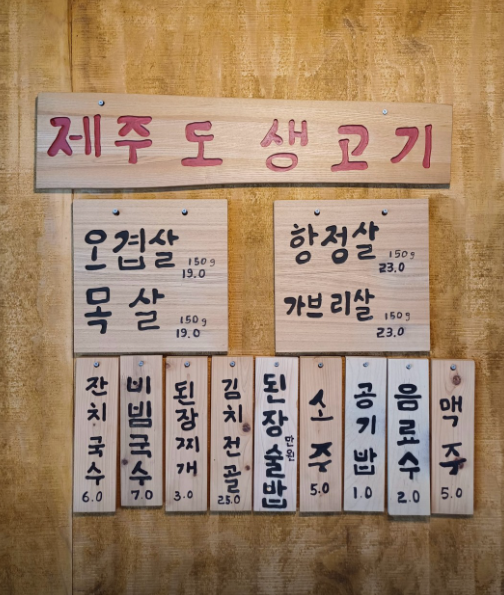 제주도 생고기
오겹살 150g
19.0
목살 150g
19.0
항정살 150g
23.0
가브리살 150g
23.0
잔치국수 6.0
비빔국수 7.0
된장찌개 3.0
김치전골 25.0
된장술밥 만원
소주 5.0
공기밥 1.0
음료수 2.0
맥주 5.0